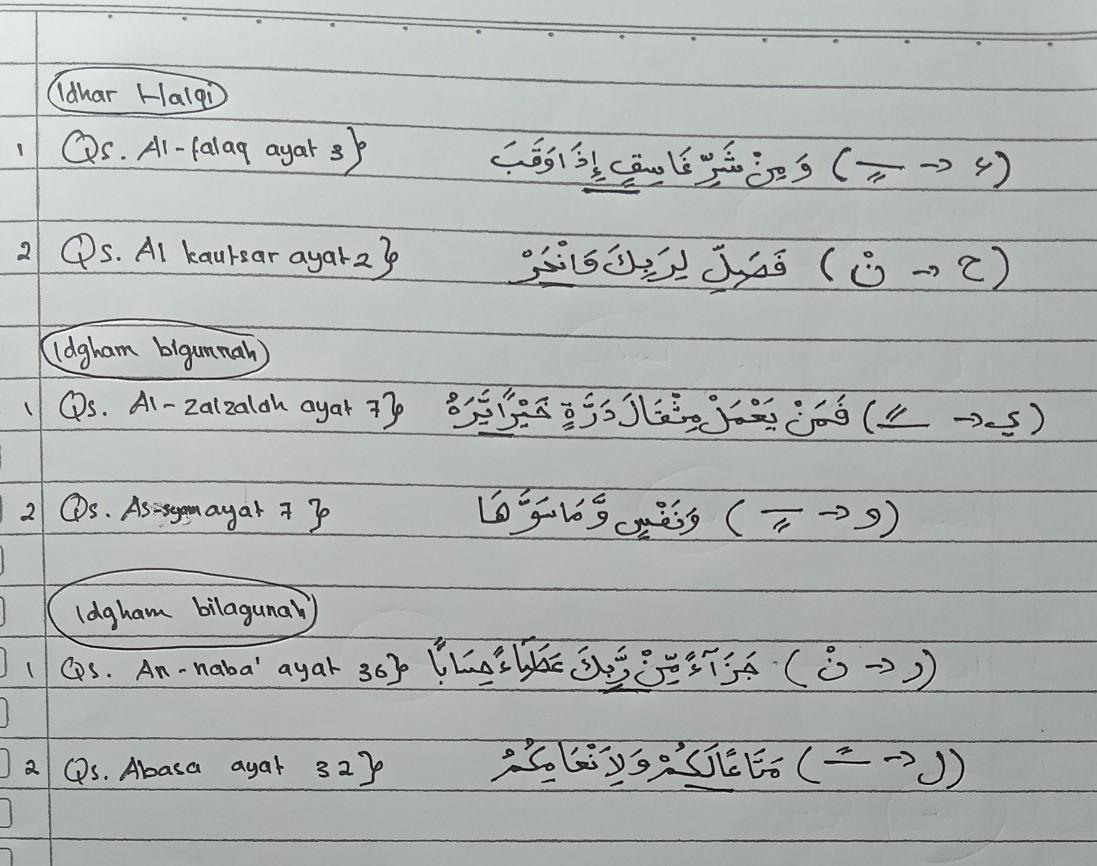 Idhar Halqi
1 Qs. Al-falaq ayat 3} وَمِنْ شَرِّ غَاسِقٍ إِذَا وَقَبَ (ـٍ ← ء)
2 Qs. Al kautsar ayat 2} فَصَلِّ لِرَبِّكَ وَانْحَرْ (نْ ← ح)
Idgham bigunnah
1 Qs. Al-zalzalah ayat 7} فَمَنْ يَعْمَلْ مِثْقَالَ ذَرَّةٍ خَيْرًا يَّرَهُ (ـً ← ي)
2 Qs. As-syam ayat 7} وَنَفْسٍ وَّمَا سَوَّهَا (ـٍ ← و)
Idgham bilagunah
1 Qs. An-naba' ayat 36} جَزَآءً مِّنْ رَّبِّكَ عَطَاءً حِسَابًا (نْ ← ر)
2 Qs. Abasa ayat 32} مَتَاعًا لَكُمْ وَلِاَنْعَامِكُمْ (ـً ← ل)